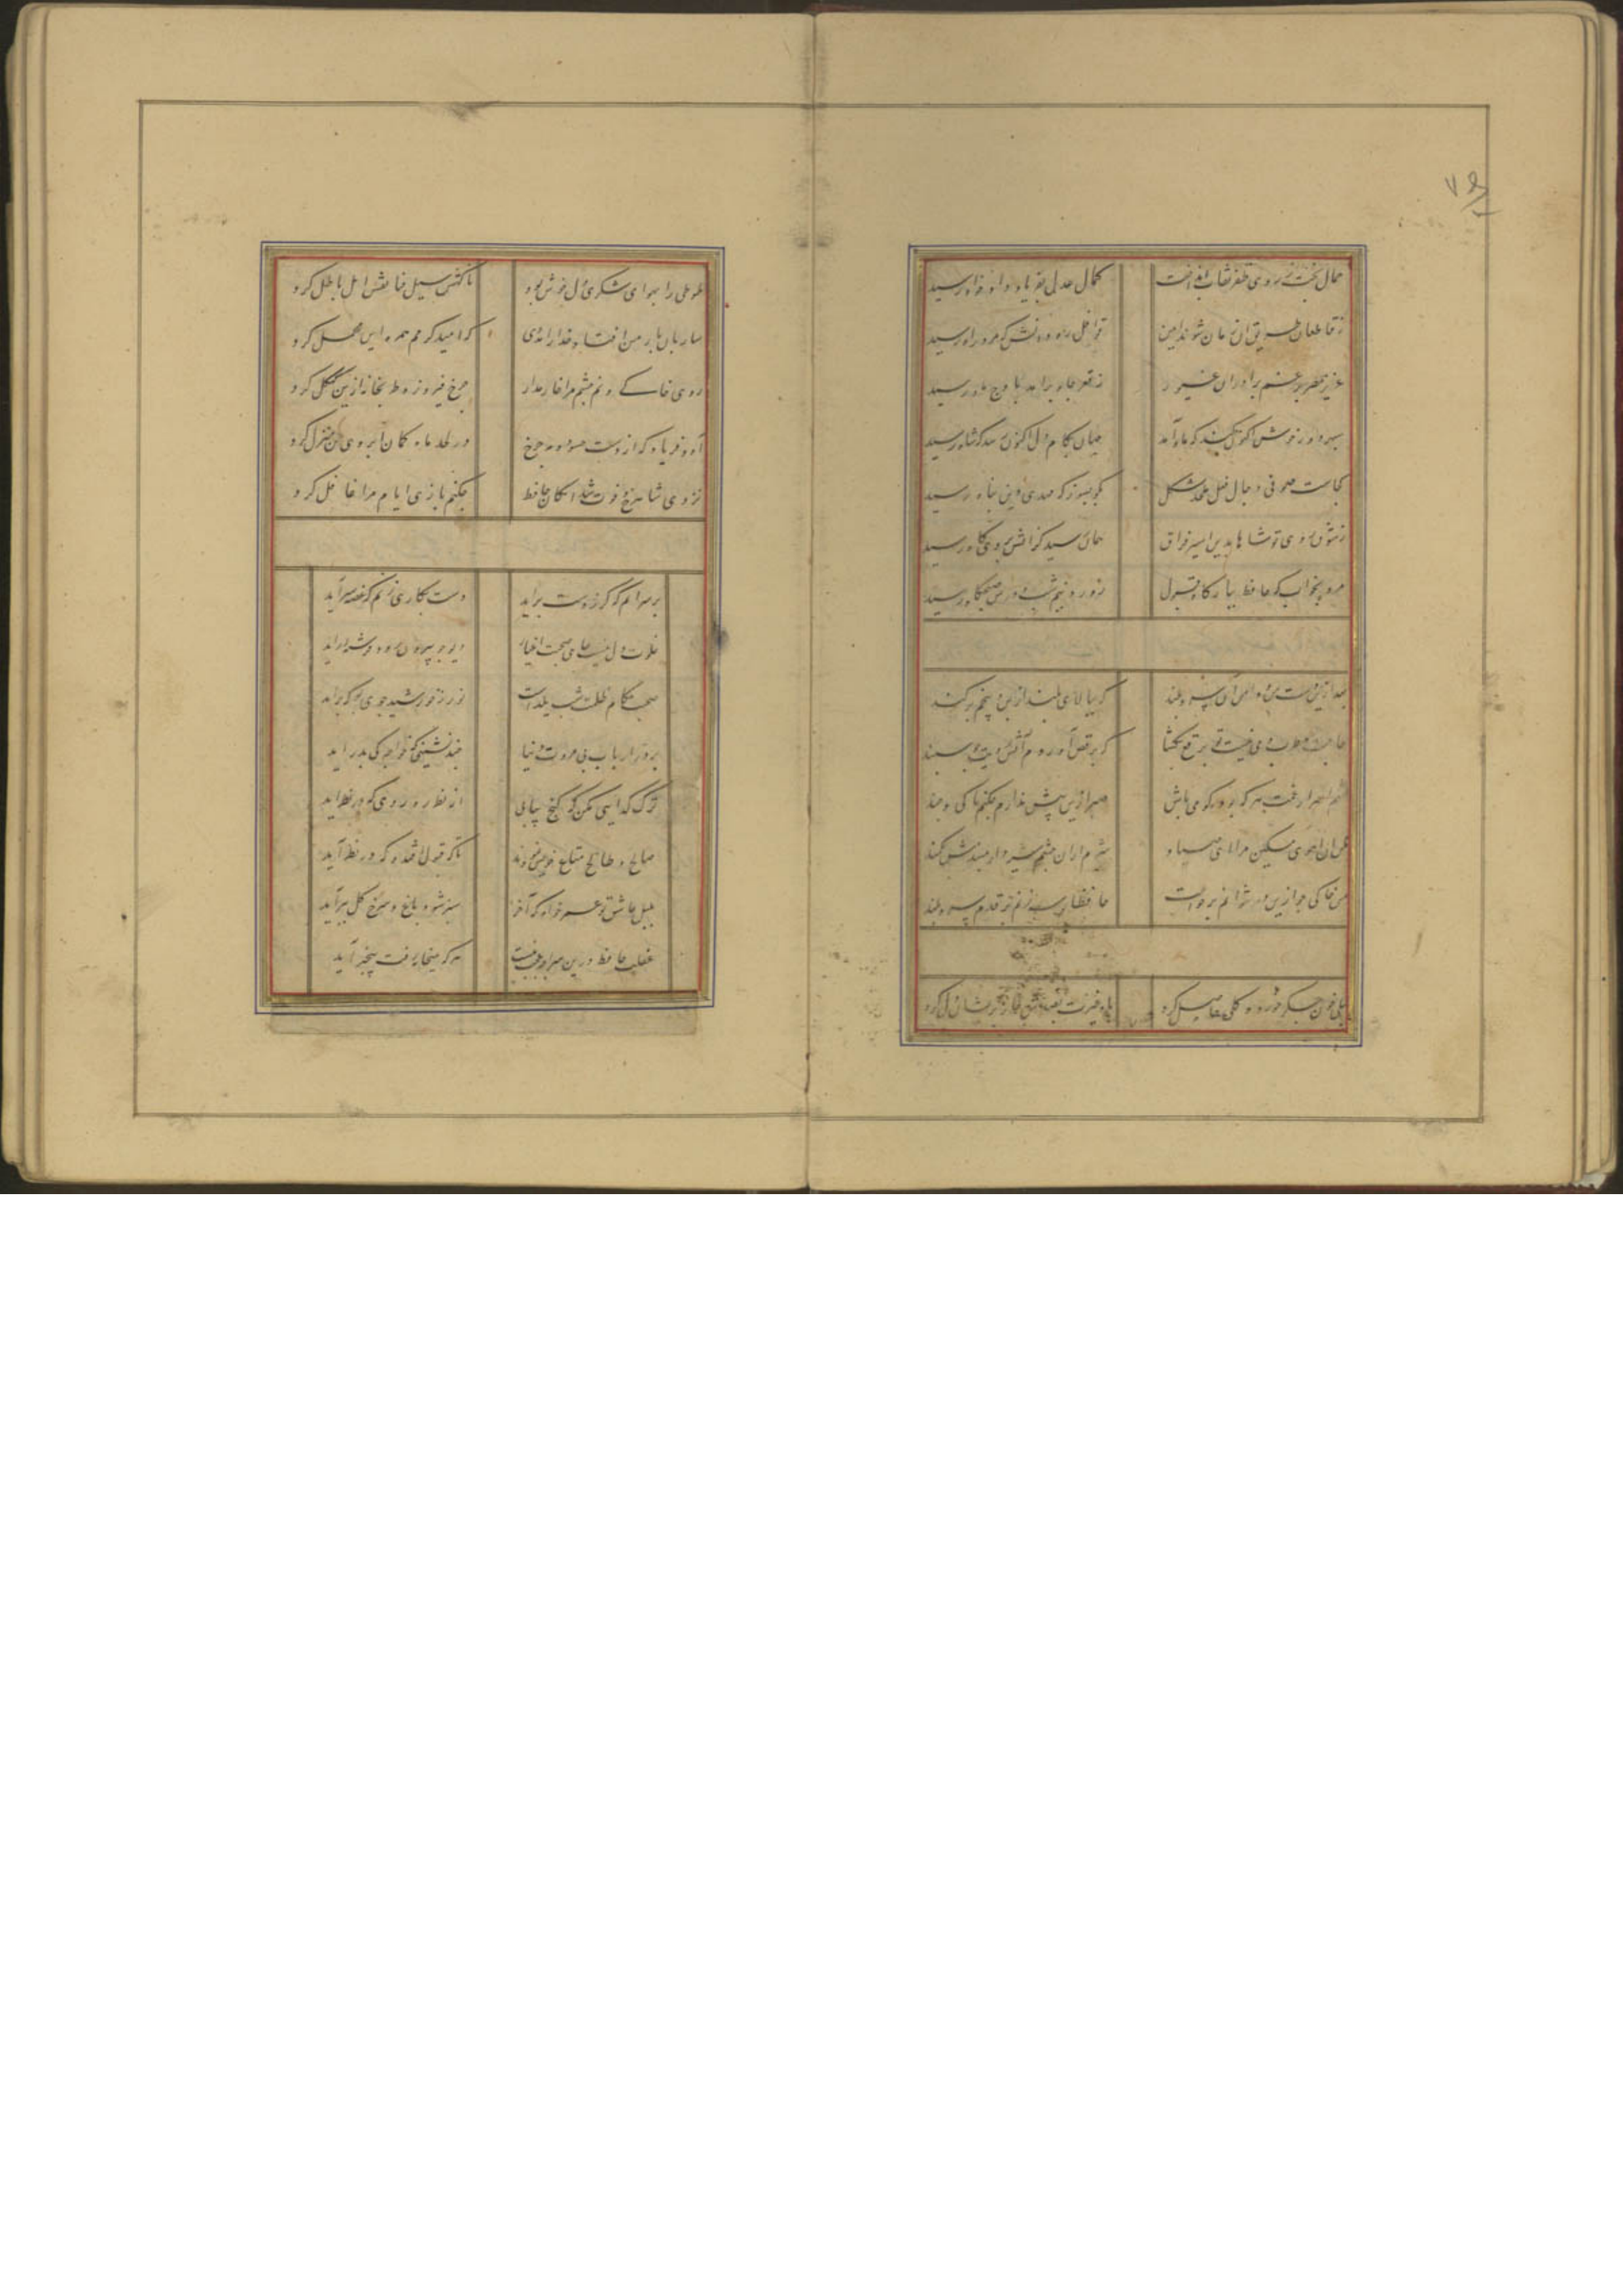 جمال بخت ز روی ظفر نقاب انداخت کمال عدل بفریاد دادخواه رسید
ز قاطعان طریق آن زمان شوند ایمن قوافل دل و دانش که مرد راه رسید
عزیز مصر برغم برادران غیور ز قعر چاه برآمد باوج ماه رسید
سپهر دور خوش اکنون کند که ماه آمد جهان بکام دل اکنون رسد که شاه رسید
کجاست صوفی دجال فعل ملحد شکل بگو بسوز که مهدی دین پناه رسید
ز شوق روی تو شاها بدین اسیر فراق همان رسید کز آتش بروی کاه رسید
مرو بخواب که حافظ ببارگاه قبول ز ورد نیم شب و درس صبحگاه رسید
بعد ازین دست من و دامن آن سرو بلند که ببالای بلند از بن و بیخم برکند
حاجت مطرب و می نیست تو برقع بگشا که برقص آوردم آتش رویت چو سپند
گفتم اسرار غمت هر که بود گو می باش صبر ازین بیش ندارم چکنم تا کی و چند
مکش آن آهوی مشکین مرا ای صیاد شرم از آن چشم سیه دار مبندش بکمند
من خاکی که ازین در نتوانم برخاست
بلبلی خون جگر خورد و گلی حاصل کرد باد غیرت بصدش خار پریشان دل کرد
طوطی را بهوای شکری دل خوش بود ناگهش سیل فنا نقش امل باطل کرد
ساربان بار من افتاد خدا را مددی که امید کرمم همره این محمل کرد
روی خاکی و نم چشم مرا خوار مدار چرخ فیروزه طربخانه ازین کهگل کرد
آه و فریاد که از دست حسود مه چرخ در لحد ماه کمان ابروی من منزل کرد
نزدی شاه رخ و فوت شد امکان حافظ چکنم بازی ایام مرا غافل کرد
بر سر آنم که گر ز دست برآید دست بکاری زنم که غصه سرآید
خلوت دل نیست جای صحبت اغیار دیو چو بیرون رود فرشته درآید
صحبت حکام ظلمت شب یلداست نور ز خورشید جوی بو که برآید
بر در ارباب بی مروت دنیا چند نشینی که خواجه کی بدر آید
ترک گدایی مکن که گنج بیابی از نظر ره روی که در نظر آید
صالح و طالح متاع خویش نمودند تا که قبول افتد و که در نظر آید
بلبل عاشق تو عمر خواه که آخر سبز شود باغ و سرخ گل ببر آید
غفلت حافظ درین سراچه عجب نیست هر که بمیخانه رفت بیخبر آید